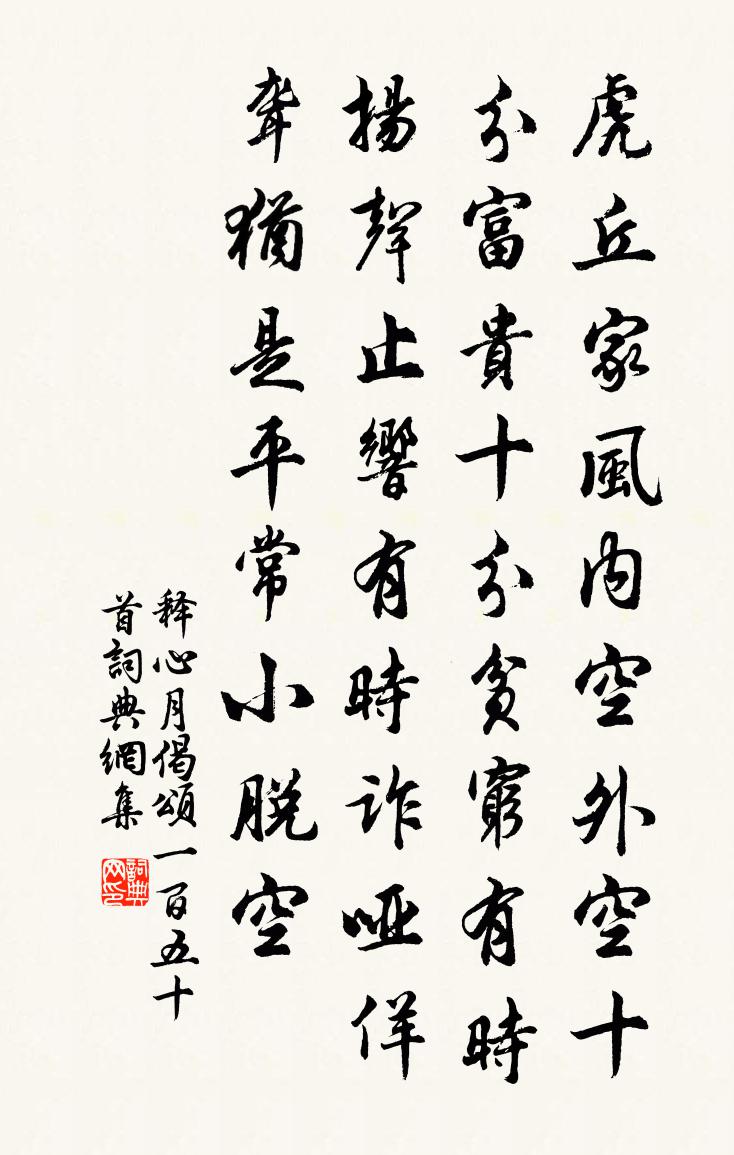 虎丘家風内空外空十
分富貴十分貧窮有時
揚聲止響有時詐啞佯
聾猶是平常小脫空
释心月偈頌一百五十
首詞典網集
詞典网印